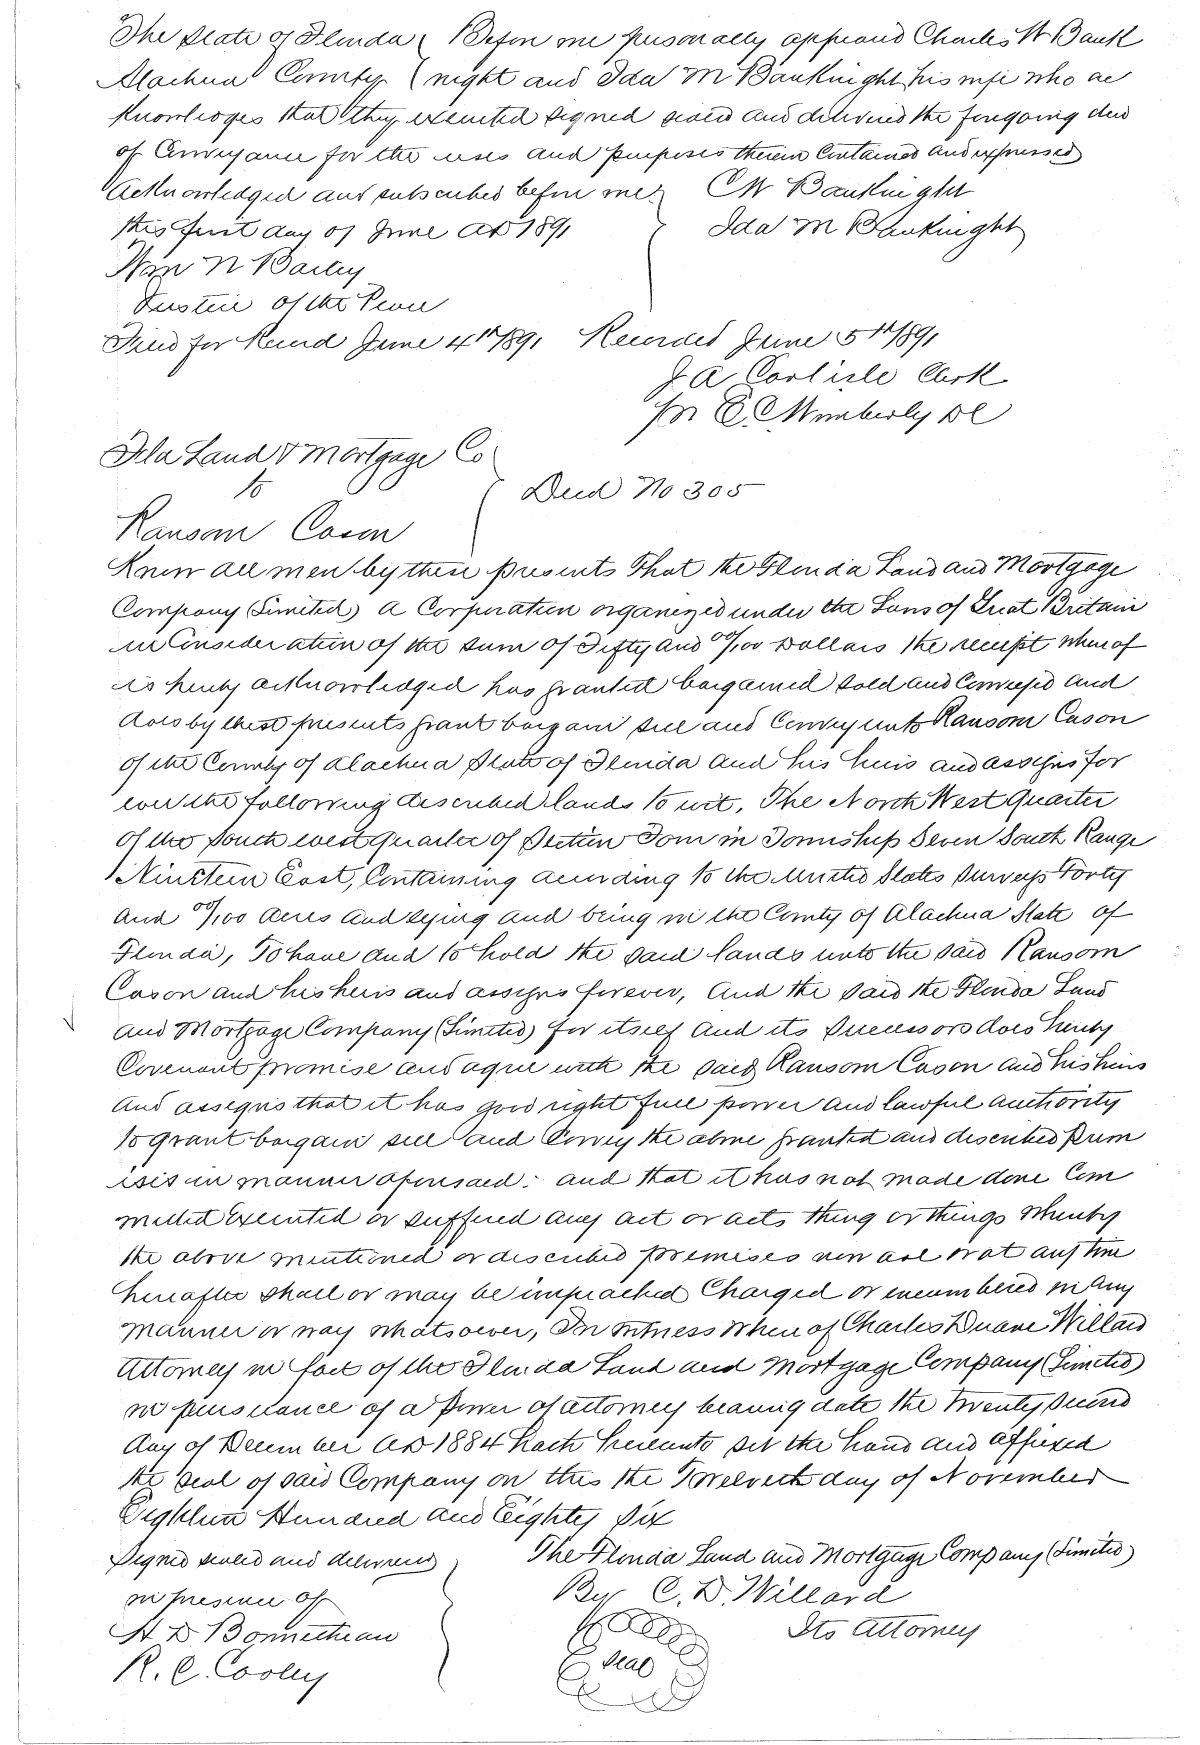 The State of Florida ( Before me personally appeared Charles W Bank
Alachua County ( night and Ida M Bauknight his wife who ac
knowledges that they executed signed sealed and delivered the foregoing deed
of Conveyance for the uses and purposes therein Contained and expressed
Acknowledged and subscribed before me CW Bauknight
this first day of June AD 1891 Ida M Bauknight
Wm N Bailey
Justice of the Peace
Filed for Record June 4th/891 Recorded June 5th/891
J A Carlisle Clerk
per E C Wimberly DC
Fla Land & Mortgage Co
to Deed No 305
Ransom Cason
Know all men by these presents That the Florida Land and Mortgage
Company (Limited) a Corporation organized under the Laws of Great Britain
in Consideration of the sum of Fifty and 00/100 Dollars the receipt whereof
is hereby acknowledged has granted bargained sold and Conveyed and
does by these presents grant bargain sell and Convey unto Ransom Cason
of the County of Alachua State of Florida and his heirs and assigns for
ever the following described lands to wit, The North West Quarter
of the South west quarter of Section Four in Township Seven South Range
Nineteen East, Containing according to the United States Surveys Forty
and 00/100 acres and lying and being in the County of Alachua State of
Florida, To have and to hold the said lands unto the said Ransom
Cason and his heirs and assigns forever, And the said the Florida Land
and Mortgage Company (Limited) for itself and its Successors does hereby
Covenant promise and agree with the said Ransom Cason and his heirs
and assigns that it has good right full power and lawful authority
to grant bargain sell and Convey the above granted and described Prem
ises in manner aforesaid: and that it has not made done Com
mitted Executed or suffered any act or acts thing or things whereby
the above mentioned or described premises now are or at any time
hereafter shall or may be impeached Charged or encumbered in any
manner or way whatsoever, In witness whereof Charles Duane Willard
Attorney in fact of the Florida Land and Mortgage Company (Limited)
in pursuance of a Power of attorney bearing date the Twenty second
day of December AD 1884 hath hereunto set the hand and affixed
the seal of said Company on this the Twelveth day of November
Eighteen Hundred and Eighty Six
Signed sealed and delivered The Florida Land and Mortgage Company (Limited)
in presence of By C. D. Willard
H D Bonnetheau Its Attorney
R. C. Cooley Seal